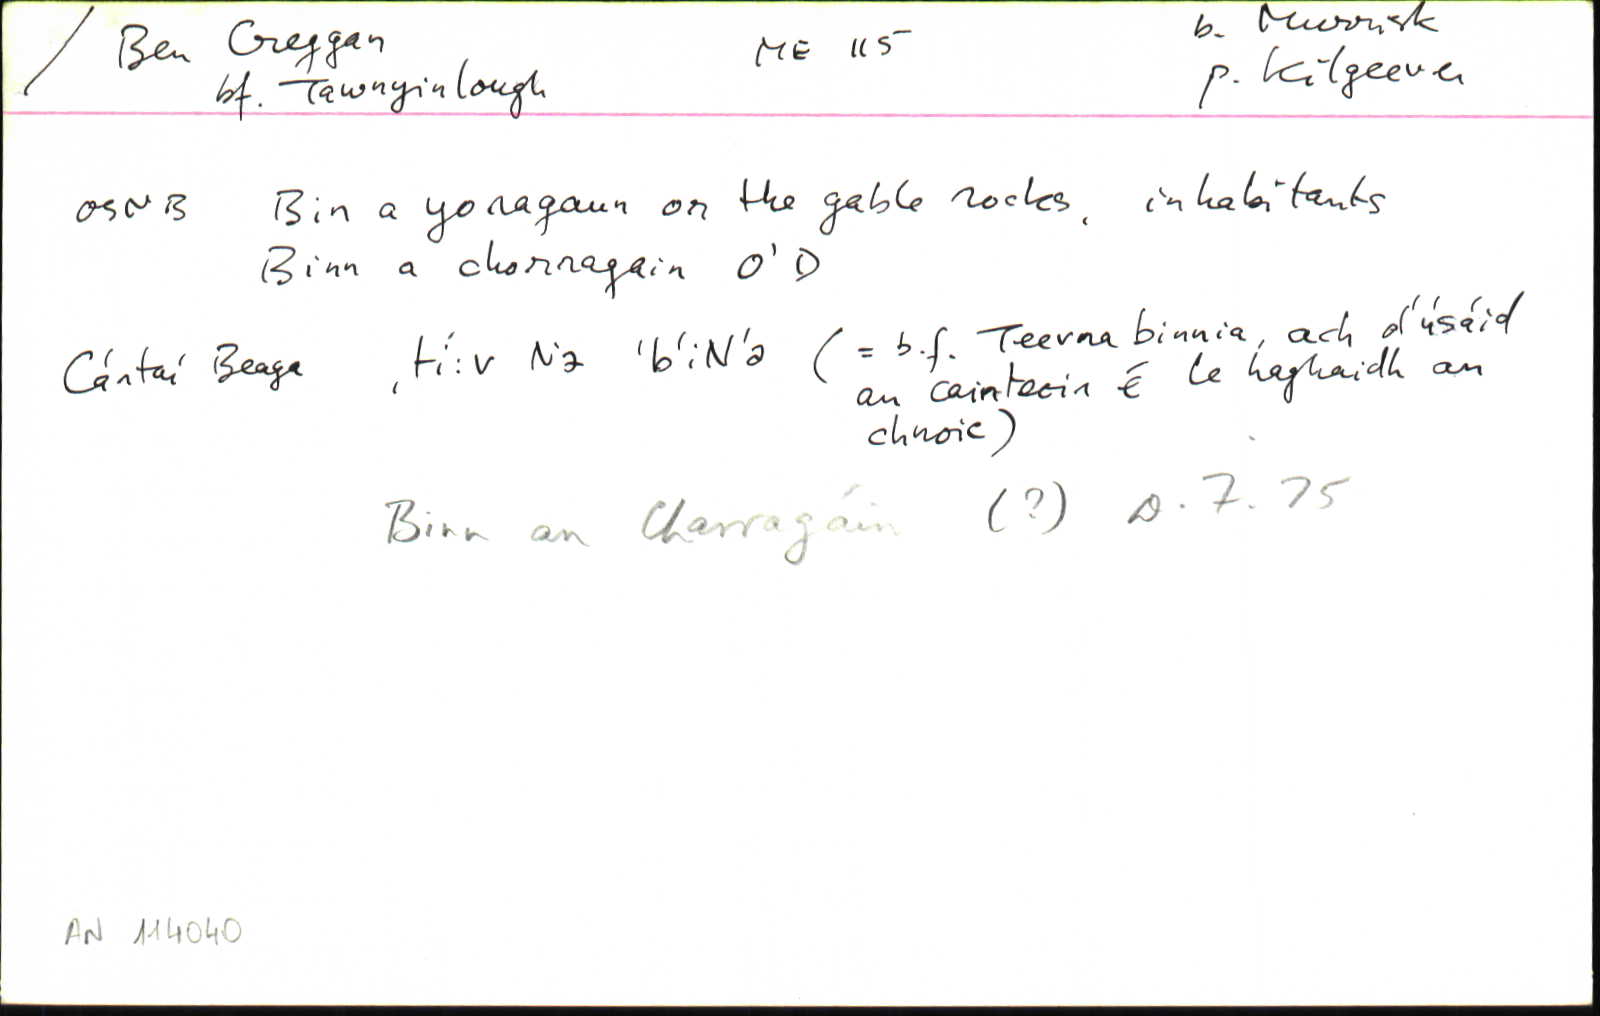 / Ben Creggan ME 115 b. Murrisk
bf. Tawnyinlough p. Kilgeever
OSNB Bin a yoragaun or the gable rocks, inhabitants
Binn a chorragain O'D
Cártaí Beaga ˌt′i:v Nə ˈb′iN′ə ( = b.f. Teevna binnia, ach d'úsáid
an cainteoir é le haghaidh an
chnoic)
Binn an Charragáin (?) D. 7. 75
AN 114040